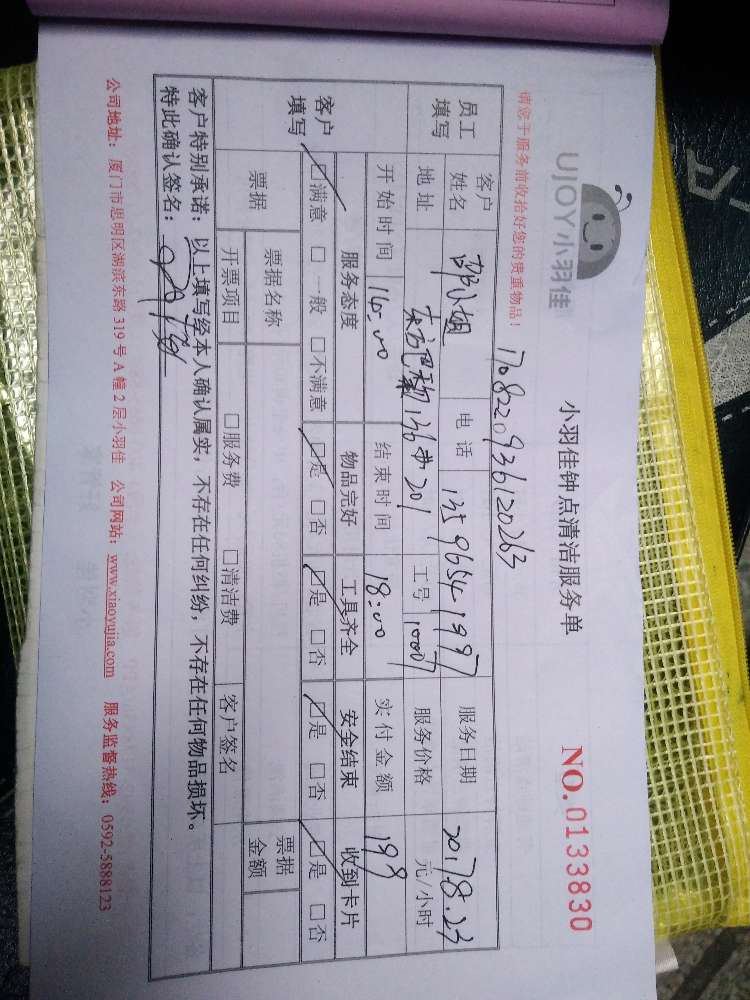 UJOY小羽佳
小羽佳钟点清洁服务单
NO.0133830
请您于服务前收拾好您的贵重物品!
1708220936120263
员工填写 客户姓名 小姐 电话 13596541997 服务日期 2017.8.23
地址 136号201 工号 10007 服务价格 元/小时
开始时间 14:00 结束时间 18:00 实付金额 199
客户填写 服务态度 物品完好 工具齐全 安全结束 收到卡片
☑满意 □一般 □不满意 ☑是 □否 ☑是 □否 ☑是 □否 ☑是 □否
票据 票据名称 票据金额
开票项目 □服务费 □清洁费 客户签名
客户特别承诺:以上填写经本人确认属实,不存在任何纠纷,不存在任何物品损坏。
特此确认签名:
公司地址:厦门市思明区湖滨东路319号A幢2层小羽佳 公司网站:www.xiaoyujia.com 服务监督热线:0592-5888123